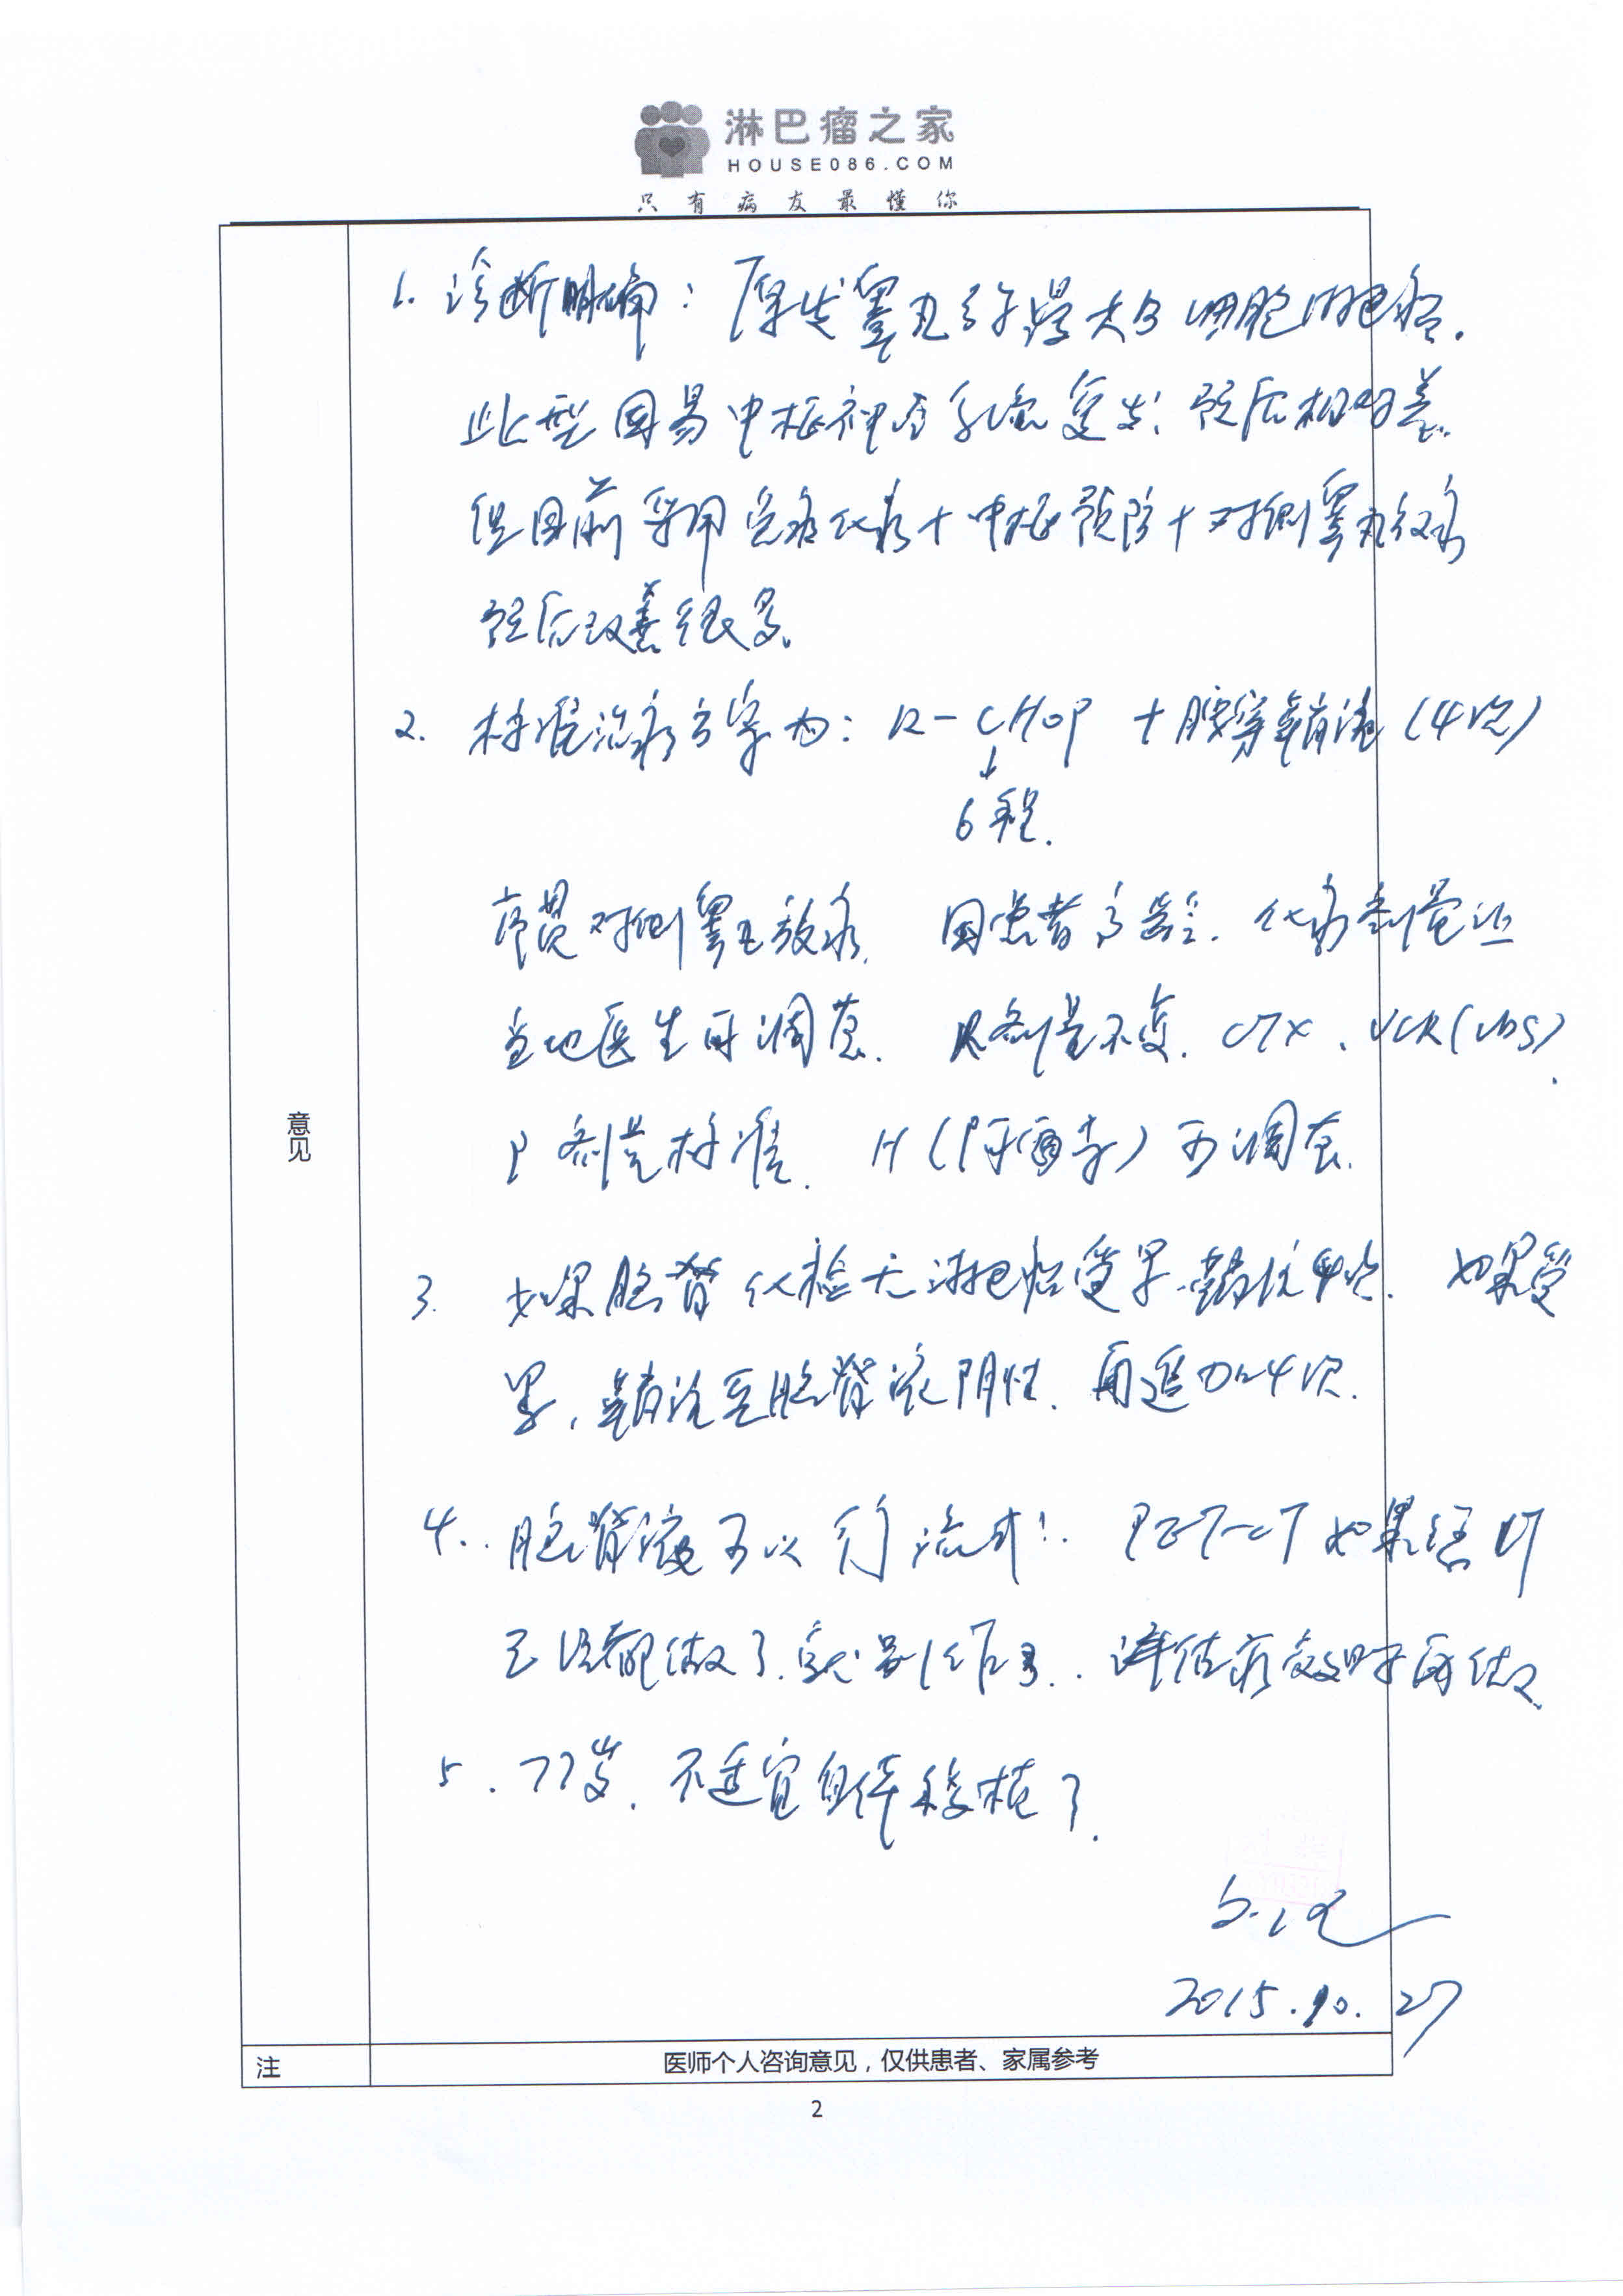 淋巴瘤之家
HOUSE086.COM
只有病友最懂你
意见
1. 诊断明确：原发睾丸弥漫大B细胞淋巴瘤.
此型因易中枢神经系统复发，预后相对差.
但目前采用免疫化疗+中枢预防+对侧睾丸放疗
预后改善很多.
2. 标准治疗方案为：R-CHOP +腰穿鞘注(4次)
↓
6程.
序贯对侧睾丸放疗. 因患者高龄. 化疗剂量让
当地医生再调整. R剂量不变. CTX、VCR(VDS)
P剂量标准. H(阿霉素)可调整.
3. 如果脑脊化检无淋巴瘤受累 鞘注4次. 如果受
累，鞘注至脑脊液阴性. 再追加4次.
4. 脑脊液可以行流式! PET-CT 如果治疗
已经都做了.就别作了. 评估疗效时再做
5. 77岁. 不适宜自体移植了.
2015.10.27
注
医师个人咨询意见，仅供患者、家属参考
2